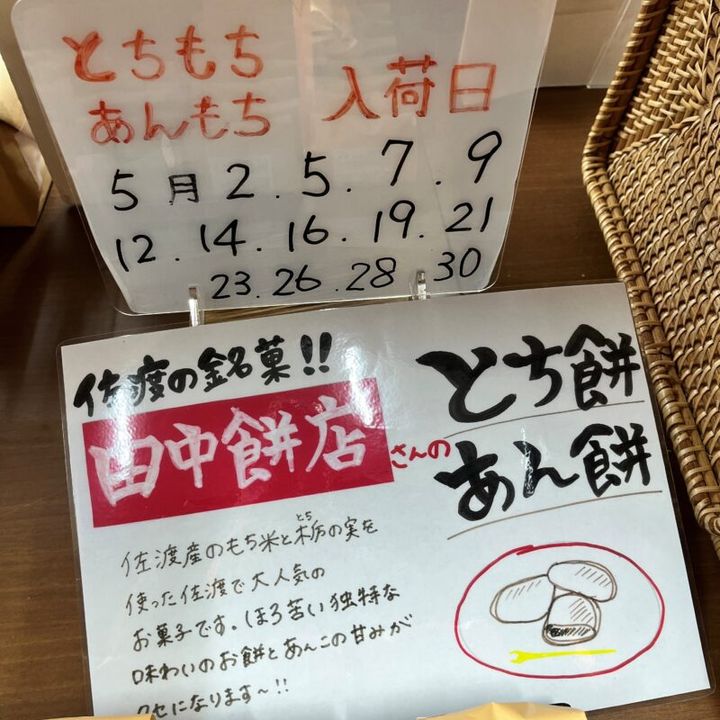 とちもち
あんもち
入荷日
5月2.5.7.9
12.14.16.19.21
23.26.28.30
佐渡の銘菓!!
田中餅店さんの
とち餅
あん餅
佐渡産のもち米と栃の実を
とち
使った佐渡で大人気の
お菓子です。ほろ苦い独特な
味わいのお餅とあんこの甘みが
クセになります〜!!